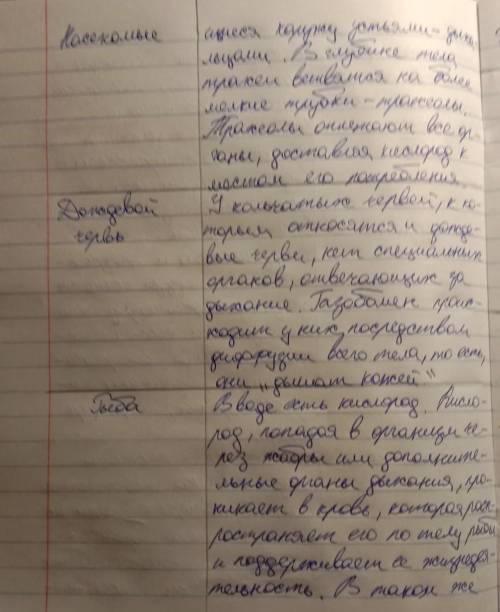 Насекомые
щиеся наружу устьями - дыха-
льцами. В глубине тела
трахеи ветвятся на более
мелкие трубки - трахеолы.
Трахеолы оплетают все ор-
ганы, доставляя кислород к
местам его потребления.
Дождевой
червь
У кольчатых червей, к ко-
торым относятся и дожде-
вые черви, нет специальных
органов, отвечающих за
дыхание. Газообмен проис-
ходит у них посредством
диффузии всего тела, то есть,
они "дышат кожей"
Рыба
В воде есть кислород. Кисло-
род, попадая в организм че-
рез жабры или дополните-
льные органы дыхания, про-
никает в кровь, которая рас-
пространяет его по телу рыбы
и поддерживает ее жизнедея-
тельность. В такой же